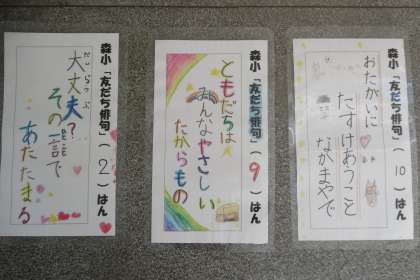 森小「友だち俳句」( 2 )はん
だいじょうぶ
大丈夫?
その一言で
あたたまる
森小「友だち俳句」( 9 )はん
ともだちは
みんなやさしい
たからもの
森小「友だち俳句」( 10 )はん
おたがいに
たすけあうこと
ながまやで